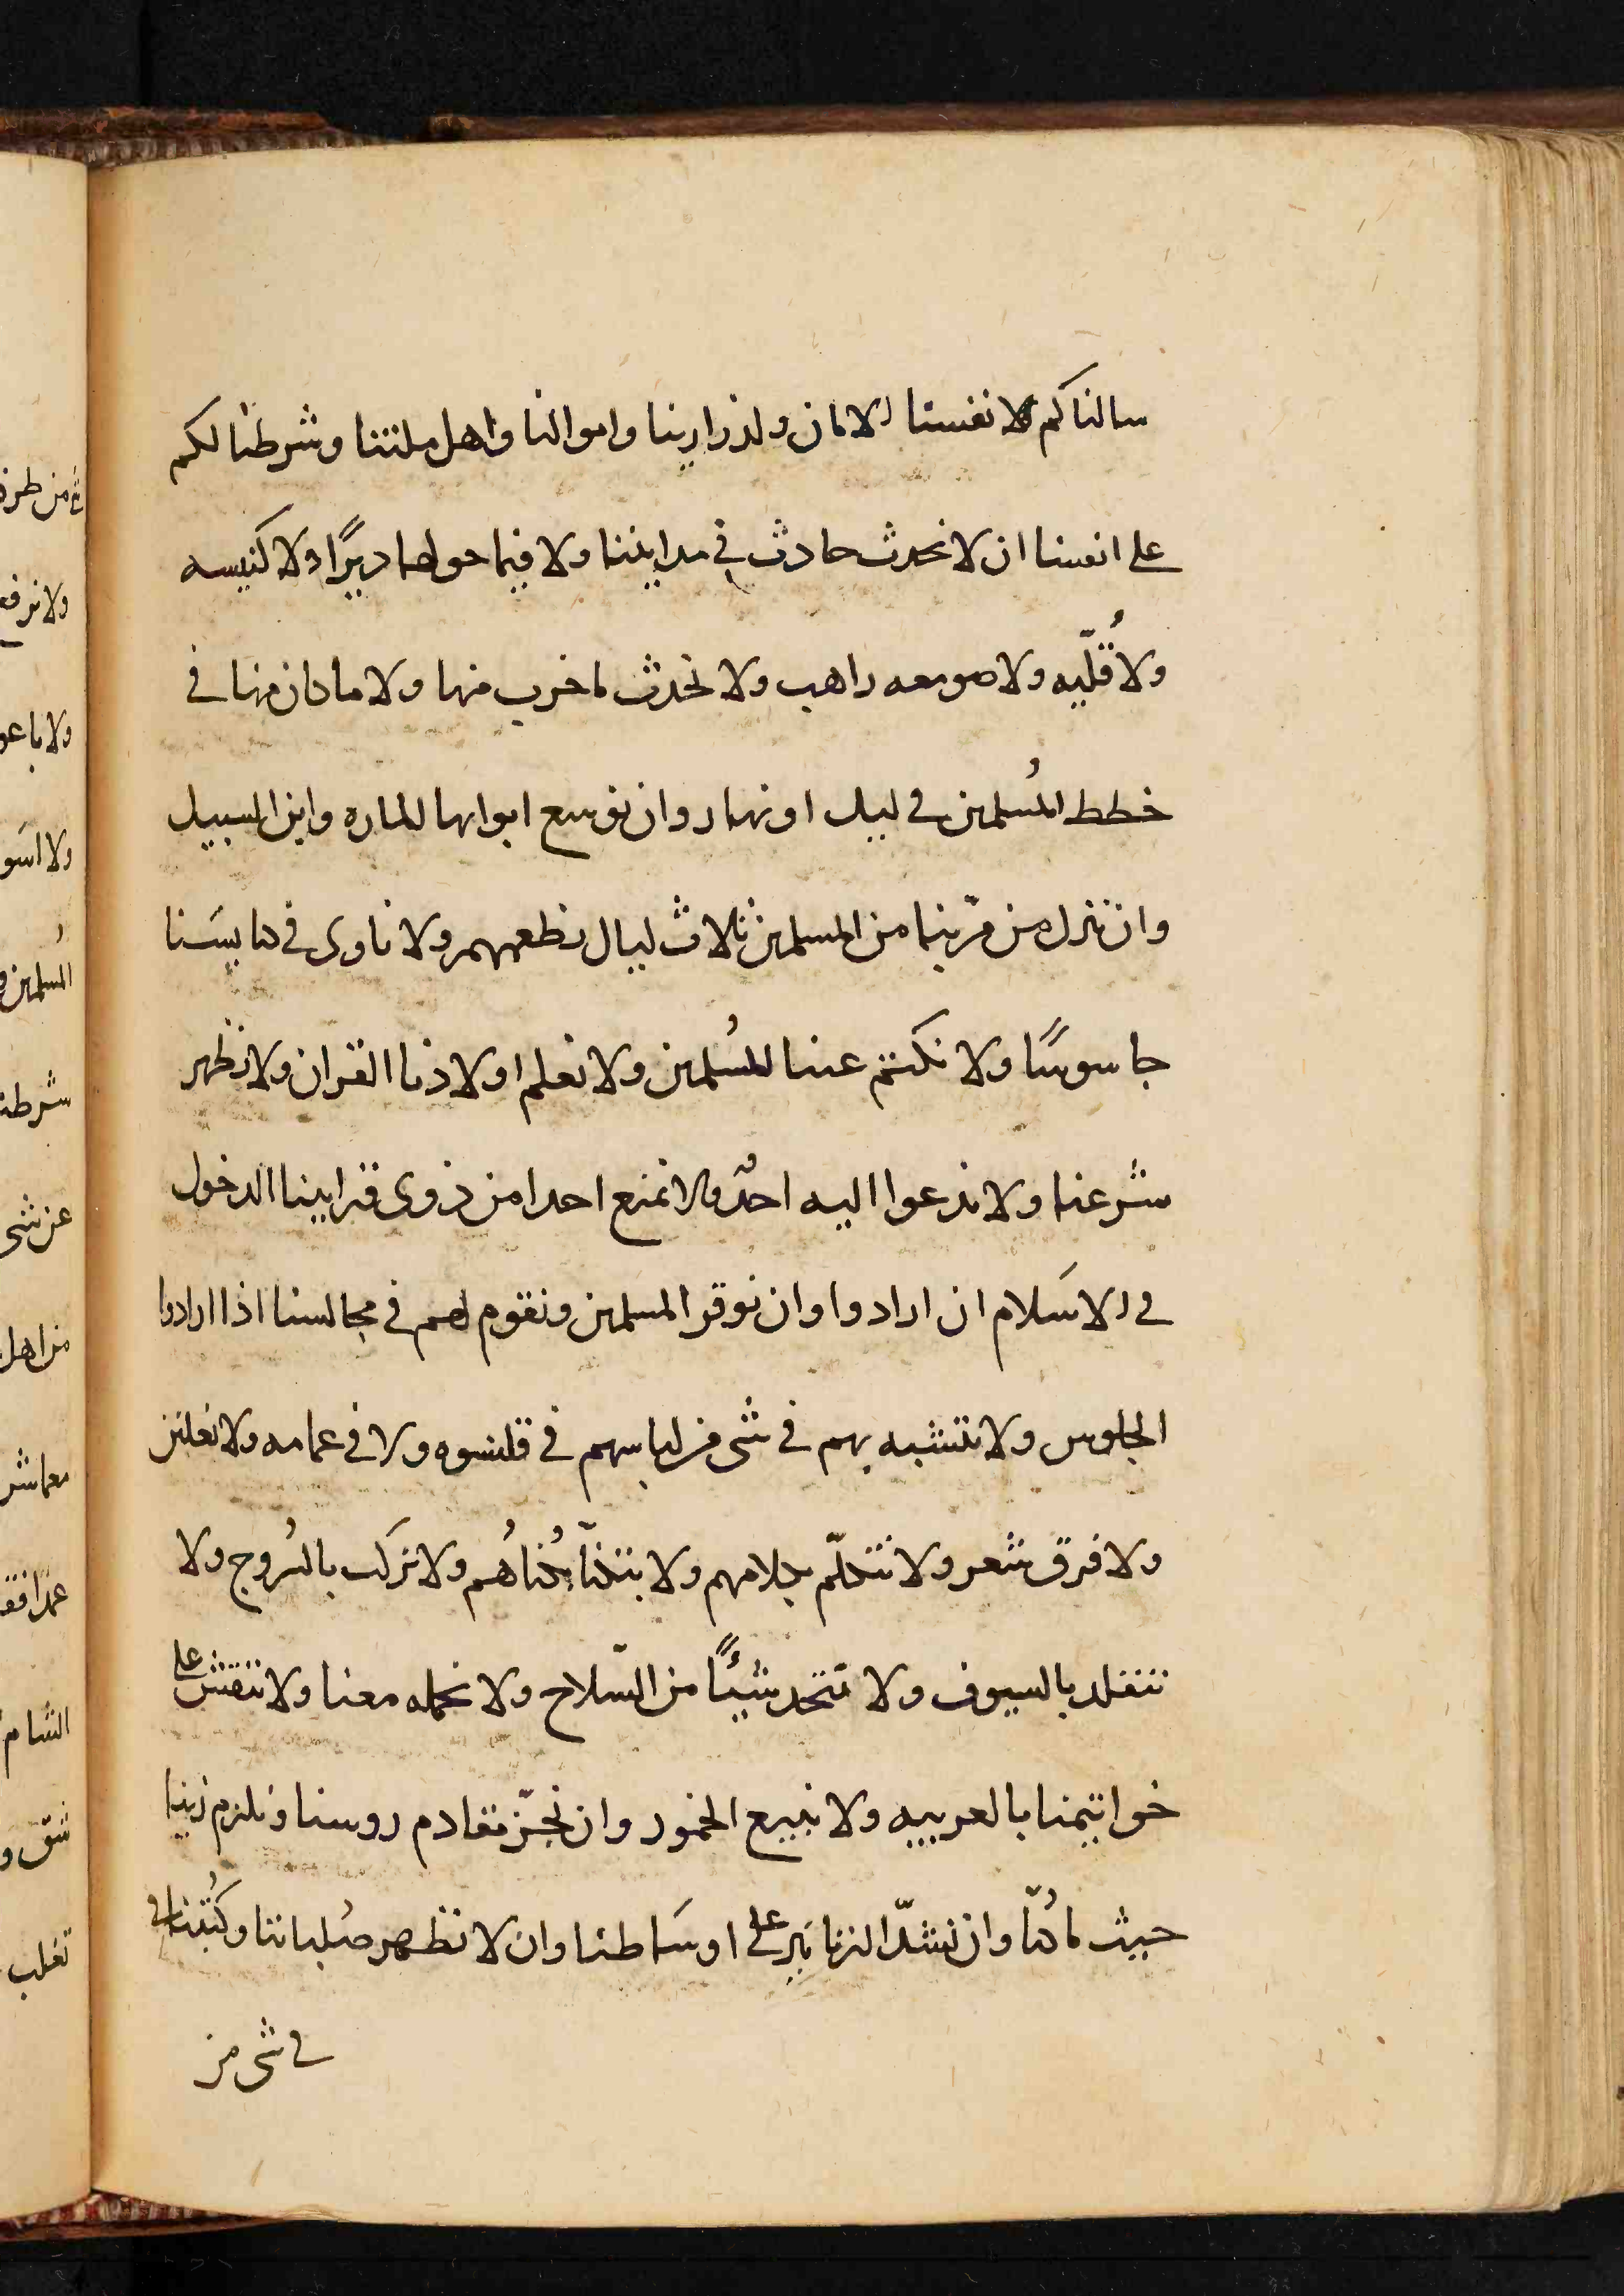 سالناكم لانفسنا الامان ولذرارينا واموالنا واهل ملتنا وشرطنا لكم
على انفسنا ان لا نحدث حادث في مدايننا ولا فيما حولها ديرًا ولا كنيسه
ولا قُلّيه ولا صومعه راهب ولا نحدث ما خرب منها ولا ما كان منها في
خطط المُسلمين في ليل او نهار وان نوسع ابوابها للماره وابن السبيل
وان ننزل من مرّ بنا من المسلمين ثلاث ليال نطعمهم ولا ناوى في كنايسَنا
جاسوسًا ولا نكتم عننا للمُسلمين ولا نعلم اولادنا القران ولا نظهر
شرعنا ولا ندعوا اليه احدٌ ولا نمنع احدا من ذوى قراببنا الدخول
في الاسَلام ان ارادوا وان نوقر المسلمين ونقوم لهم في مجالسنا اذا ارادوا
الجلوس ولا نتشبه بهم في شى من لباسهم في قلنسوه ولا في عمامه ولا نعلين
ولا فرق شعر ولا نتكلّم بكلامهم ولا نتكنّا بكُناهُم ولا نركب بالسُروج ولا
نتقلد بالسيوف ولا نتخد شيئًا من السّلاح ولا نحمله معنا ولا ننقش على
خواتيمنا بالعربيه ولا نبيع الخمور وان نجزّ مقادم روسنا ونلزم زينا
حيث ما كُنّا وان نشدّ الزنانير على اوسَاطنا وان لا نظهر صُلباننا وكُتبنا
في شى من